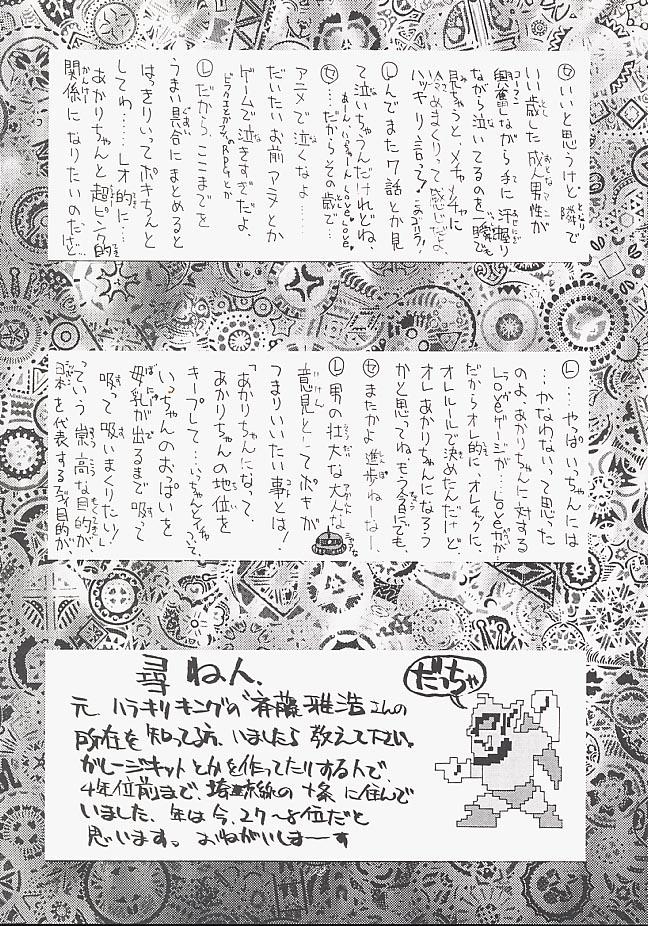 セ いいと思うけど隣で
いい歳した成人男性が
興奮しながら手に汗握り
ながら泣いてるのを一瞬でも
見ちゃうと、メチャメチャに
あまりって感じだよ、
ハッキリ言って!
レ んでまた7話とか見
て泣いちゃうんだけれどね、
セ …だからその歳で
アニメで泣くなよ……
だいたいお前アニメとか
ゲームで泣きすぎだよ、
RPGとか
レ だから、ここまでを
うまい具合にまとめると
はっきりいってボキちんと
してわ……レオ的に……
あかりちゃんと超ピンク的
関係になりたいのだけど…
レ ……やっぱいっちゃんには
…かなわないって思った
のよ、あかりちゃんに対する
Loveゲージが…Loveが
だからオレ的に、オレチックに、
オレルールで決めたんだけど、
オレあかりちゃんになろう
かと思ってね、もう今にでも、
セ またかよ進歩ねーなー、
レ 男の壮大な大人な
意見としてボキが
つまりいいたい事とは!
「あかりちゃんになって、
あかりちゃんの地位を
キープして、いっちゃんとイチャって、
いっちゃんのおぱいを
母乳が出るまで吸って
吸って吸いまくりたい!」
っていう崇高な目的が
日本を代表する目的が
尋ねん、
だっちゃ
元ハラキリキングの斉藤雅浩さんの
所在を知ってる方、いましたら教えて下さい。
ガレージキットとかを作ってたりする人で、
4年位前まで、埼京線の十条に住んで
いました、年は今、27〜8位だと
思います。おねがいしまーす